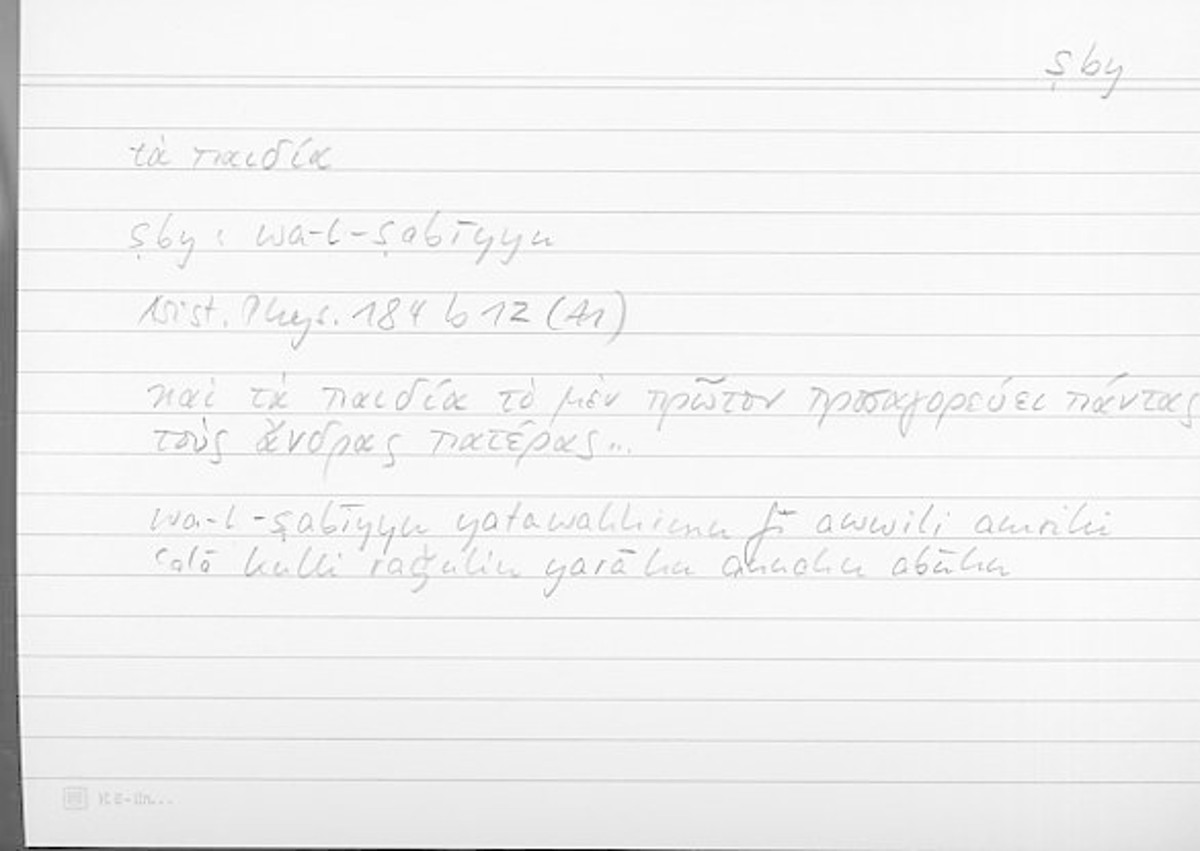 ṣby
τὰ παιδία
ṣby : wa-l-ṣabīyyu
Arist. Phys. 184 b 12 (A1)
καὶ τὰ παιδία τὸ μὲν πρῶτον προσαγορεύει πάντας
τοὺς ἄνδρας πατέρας...
wa-l-ṣabīyyu yatawahhimu fī awwili amrihi
ʿalā kulli raǧulin yarāhu annahu abūhu